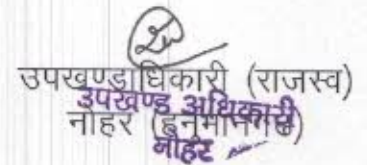 उपखण्डाधिकारी (राजस्व)
उपखण्ड अधिकारी
नोहर (हनुमानगढ)
नोहर